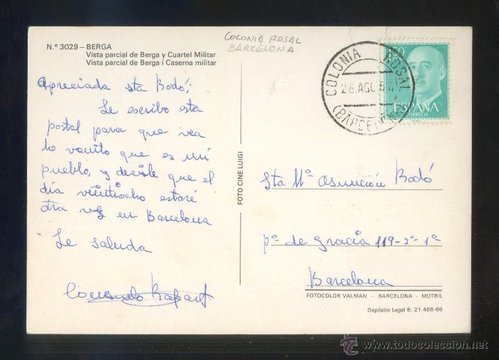 N.º 3029 - BERGA
Vista parcial de Berga y Cuartel Militar
Vista parcial de Berga i Caserna militar
COLONIA ROSAL
BARCELONA
Apreciada sta Bodó:
Le escribo esta
postal para que vea
lo bonito que es mi
pueblo, y decirle que el
día veintiocho estaré
otra vez en Barcelona
Le saluda
FOTO CINE LUIGI
COLONIA ROSAL
26 AGO
(BARCELONA)
ESPAÑA
CORREOS
Sta Mª Asunción Bodó
pº de gracia 119-2º-1ª
Barcelona
FOTOCOLOR VALMAN - BARCELONA - MOTRIL
Depósito Legal B. 21 466-66
www.todocoleccion.net